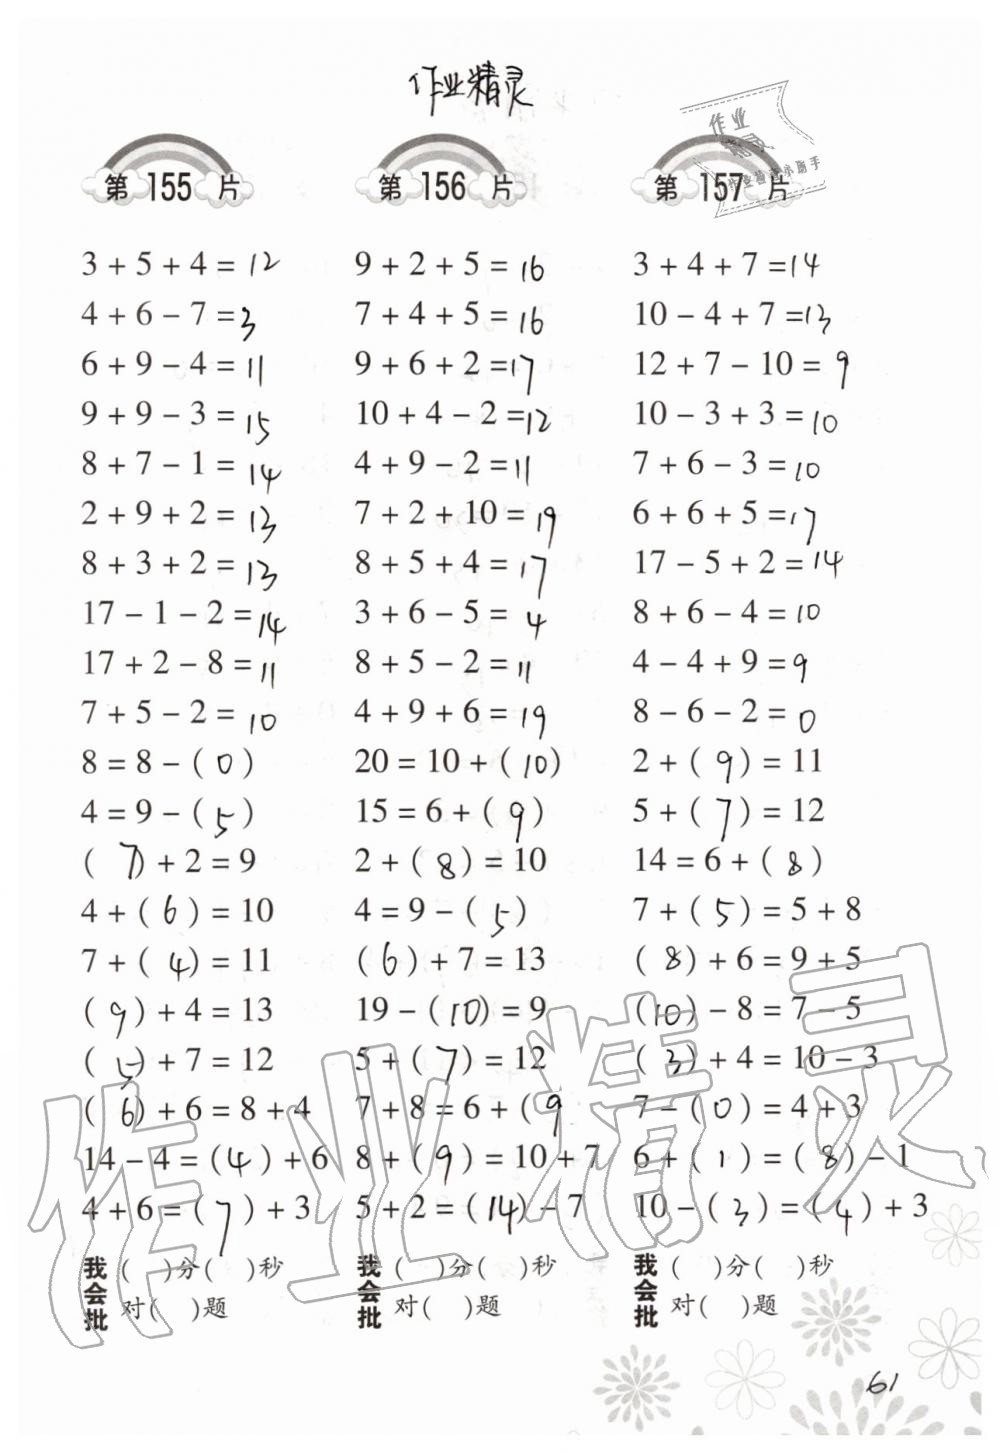 作业精灵
作业
精灵
作业检查小助手
第 155 片
3 + 5 + 4 = 12
4 + 6 − 7 = 3
6 + 9 − 4 = 11
9 + 9 − 3 = 15
8 + 7 − 1 = 14
2 + 9 + 2 = 13
8 + 3 + 2 = 13
17 − 1 − 2 = 14
17 + 2 − 8 = 11
7 + 5 − 2 = 10
8 = 8 − ( 0 )
4 = 9 − ( 5 )
( 7 ) + 2 = 9
4 + ( 6 ) = 10
7 + ( 4 ) = 11
( 9 ) + 4 = 13
( 5 ) + 7 = 12
( 6 ) + 6 = 8 + 4
14 − 4 = ( 4 ) + 6
4 + 6 = ( 7 ) + 3
我会批
( )分( )秒
对( )题
第 156 片
9 + 2 + 5 = 16
7 + 4 + 5 = 16
9 + 6 + 2 = 17
10 + 4 − 2 = 12
4 + 9 − 2 = 11
7 + 2 + 10 = 19
8 + 5 + 4 = 17
3 + 6 − 5 = 4
8 + 5 − 2 = 11
4 + 9 + 6 = 19
20 = 10 + ( 10 )
15 = 6 + ( 9 )
2 + ( 8 ) = 10
4 = 9 − ( 5 )
( 6 ) + 7 = 13
19 − ( 10 ) = 9
5 + ( 7 ) = 12
7 + 8 = 6 + ( 9
8 + ( 9 ) = 10 + 7
5 + 2 = ( 14 ) − 7
我会批
( )分( )秒
对( )题
第 157 片
3 + 4 + 7 = 14
10 − 4 + 7 = 13
12 + 7 − 10 = 9
10 − 3 + 3 = 10
7 + 6 − 3 = 10
6 + 6 + 5 = 17
17 − 5 + 2 = 14
8 + 6 − 4 = 10
4 − 4 + 9 = 9
8 − 6 − 2 = 0
2 + ( 9 ) = 11
5 + ( 7 ) = 12
14 = 6 + ( 8 )
7 + ( 5 ) = 5 + 8
( 8 ) + 6 = 9 + 5
( 10 ) − 8 = 7 − 5
( 3 ) + 4 = 10 − 3
7 − ( 0 ) = 4 + 3
6 + ( 1 ) = ( 8 ) − 1
10 − ( 3 ) = ( 4 ) + 3
我会批
( )分( )秒
对( )题
作业精灵
61